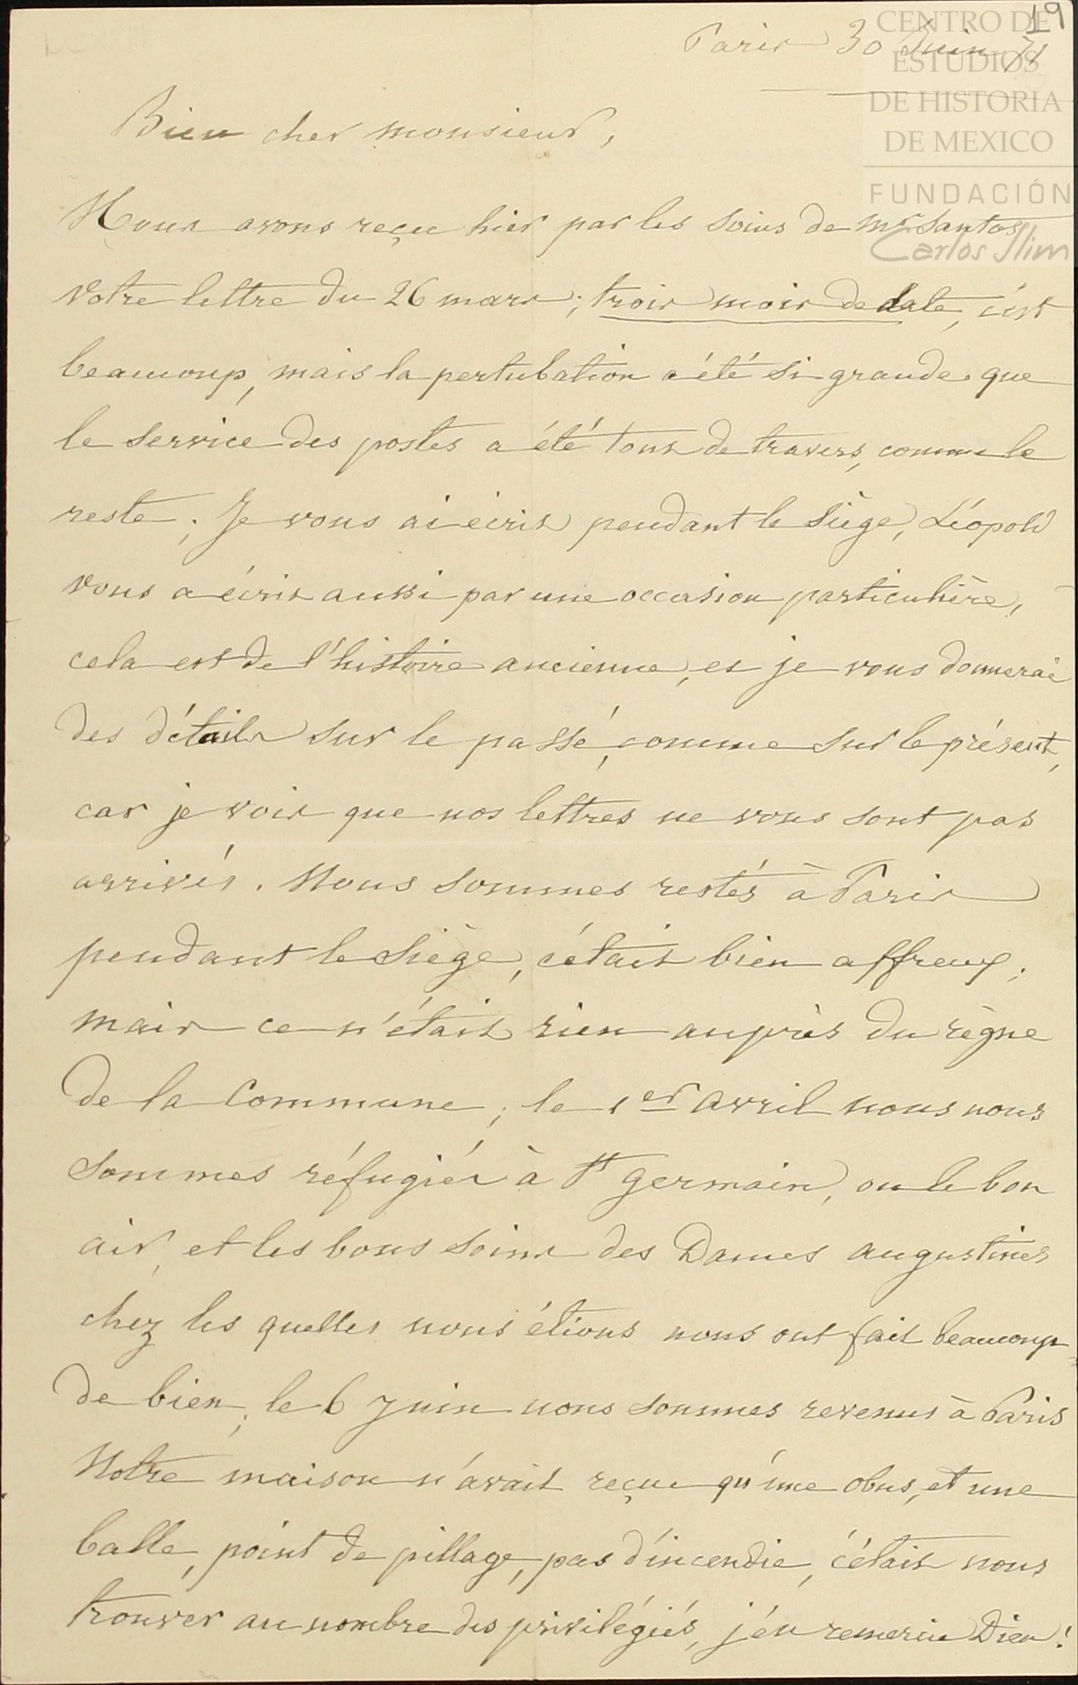 19
CENTRO DE
ESTUDIOS
DE HISTORIA
DE MEXICO
FUNDACIÓN
Carlos Slim
Paris 30 Juin 71
Bien cher monsieur,
Nous avons reçu hier par les soins de Mr Santos
votre lettre du 26 mars ; trois mois de date, c'est
beaucoup, mais la pertubation a été si grande que
le service des postes a été tous de travers, comme le
reste ; Je vous ai écris pendant le siège, Léopold
vous a écris aussi par une occasion particulière,
cela est de l'histoire ancienne, et je vous donnerai
des détails sur le passé, comme sur le présent,
car je vois que nos lettres ne vous sont pas
arrivés. Nous sommes restés à Paris
pendant le siège, c'était bien affreux ;
mais ce n'était rien auprès du règne
de la Commune ; le 1er avril nous nous
sommes réfugiés à St Germain, ou le bon
air, et les bons soins des Dames augustines
chez les quelles nous étions nous ont fait beaucoup
de bien ; le 6 Juin nous sommes revenus à Paris
Notre maison n'avait reçue qu'une obus, et une
balle, point de pillage, pas d'incendie, c'était nous
trouver au nombre des privilégiés, j'en remercie Dieu !